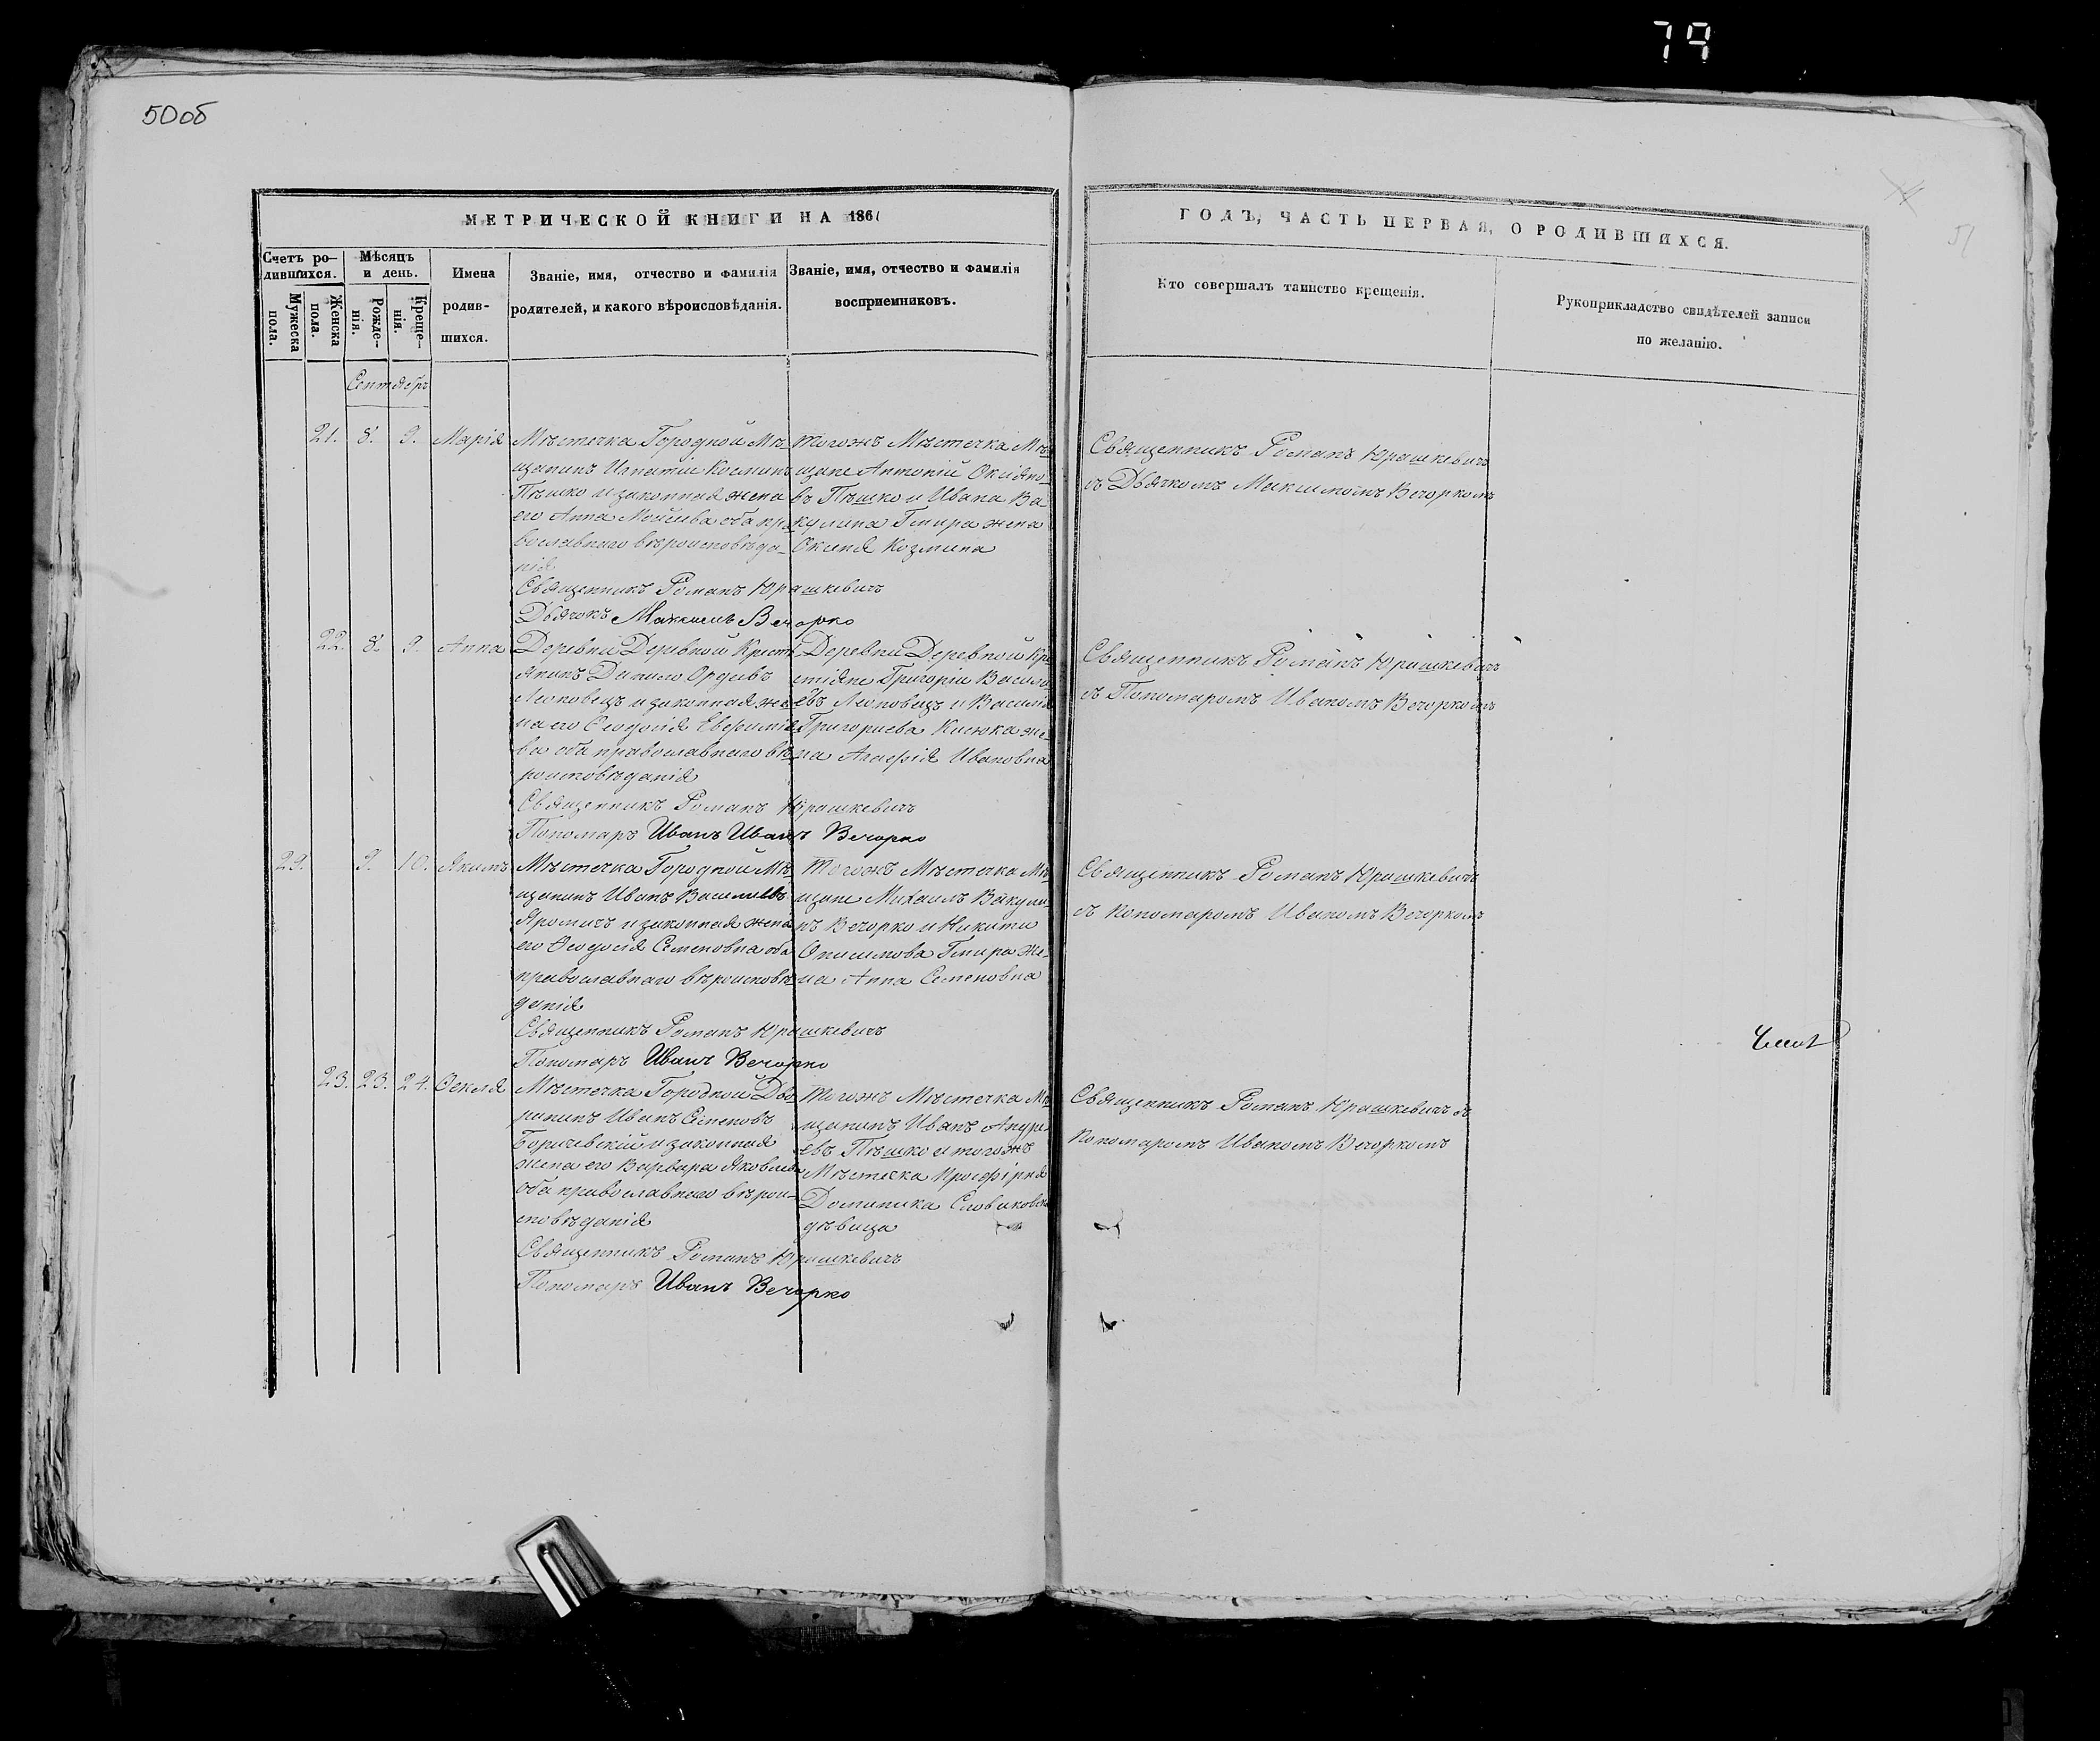 79
50об
51
МЕТРИЧЕСКОЙ КНИГИ НА 1861
ГОДЪ, ЧАСТЬ ПЕРВАЯ, О РОДИВШИХСЯ.
Счетъ ро-
дившихся.
Мужеска
пола.
Женска
пола.
Мѣсяцъ
и день.
Рожде-
нія.
Креще-
нія.
Имена
родив-
шихся.
Званіе, имя, отчество и фамилія
родителей, и какого вѣроисповѣданія.
Званіе, имя, отчество и фамилія
воспріемниковъ.
Кто совершалъ таинство крещенія.
Рукоприкладство свидѣтелей записи
по желанію.
Сентябрь
21. 8. 9. Марія
Мѣстечка Городной Мѣ-
щанинъ Игнатій Косминъ
Пѣшко и законная жена
его Анна Моѵсеева оба пра
вославнаго вѣроисповѣда-
нія
Священникъ Романъ Юрашкевичъ
Дьячокъ Максимъ Вечорко
тогожъ Мѣстечка Мѣ-
щане Антоній
въ Пѣшко и Ивана Ва
кулина Гмира жена
Ксенія Козмина
Священникъ Романъ Юрашкевичъ
съ Дьячкомъ Максимомъ Вечоркомъ
22. 8. 9. Анна
Деревни Деревной Крестъ
янинъ Данило
Леоновецъ и законная же-
на его Ѳеодосія
ва оба православнаго вѣ-
роисповѣданія
Священникъ Романъ Юрашкевичъ
Пономаръ Иванъ Иванъ Вечорко
Деревни Деревной Кре
стіяне Григорій Василі
евъ Леоновецъ и Василія
Григориева Кисюка же-
на Агафія Ивановна
Священникъ Романъ Юрашкевичъ
съ Пономаромъ Иваномъ Вечоркомъ
29. 9. 10. Якимъ
Мѣстечка Городной Мѣ-
щанинъ Иванъ Васильевъ
Яромичъ и законная жена
его Ѳеодосія Семеновна оба
православнаго вѣроисповѣ
данія
Священникъ Романъ Юрашкевичъ
Пономаръ Иванъ Вечорко
Тогожъ Мѣстечка Мѣ-
щане Михаилъ Вакули-
нъ Вечорко и Никиты
Онисимова Гмира Же-
на Анна Семеновна
Священникъ Романъ Юрашкевичъ
съ пономаромъ Иваномъ Вечоркомъ
23. 23. 24. Ѳекла
Мѣстечка Городной Дво-
рянинъ Иванъ Семеновъ
Боричевскій и законная
жена его Варвара Яковлева
оба православнаго вѣрои-
споведанія
Священникъ Романъ Юрашкевичъ
Пономаръ Иванъ Вечорко
Тогожъ Мѣстечка Мѣ
щанинъ Иванъ Андре
евъ Пѣшко и тогожъ
Мѣстечка
Доминика
дѣвица
Священникъ Романъ Юрашкевичъ съ
пономаромъ Иваномъ Вечоркомъ